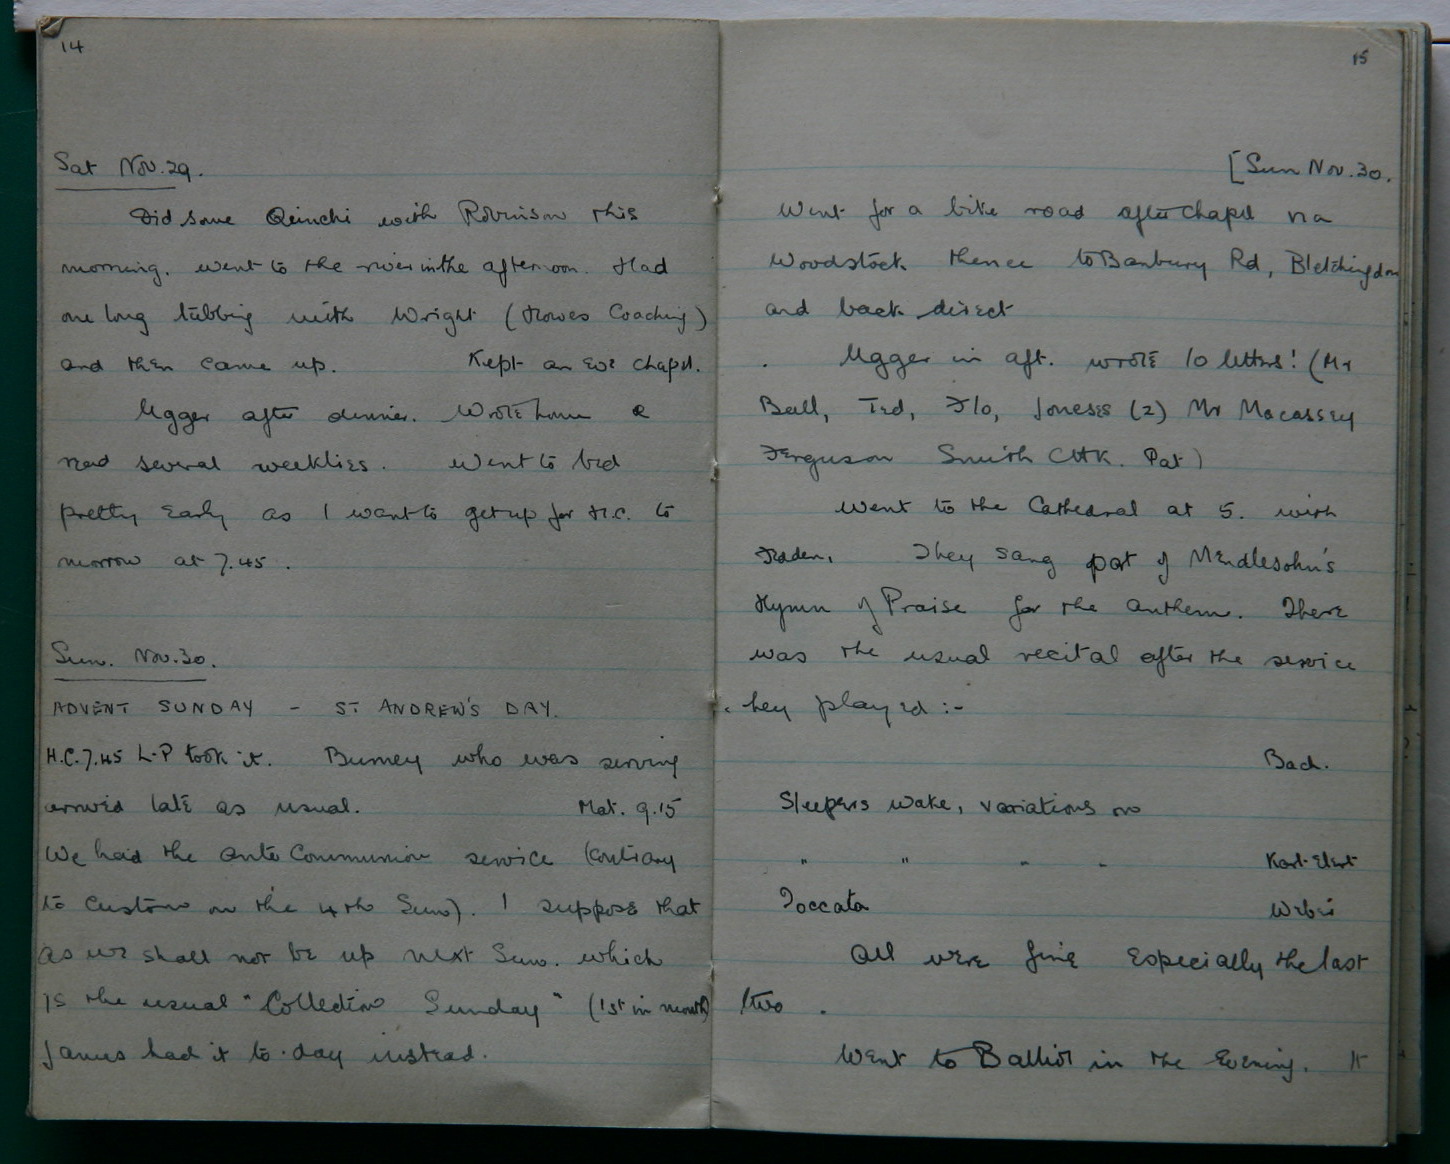 14
Sat Nov. 29.
Did some with Robinson this
morning. went to the river in the afternoon. Had
one long tubbing with Wright (Howes Coaching)
and then came up. Kept an eve chapel.
Ugger after dinner. Wrote home &
read several weeklies. Went to bed
pretty early as I want to get up for H.C. to
morrow at 7.45.
Sun. Nov. 30.
ADVENT SUNDAY - ST ANDREW'S DAY.
H.C. 7.45 L-P took it. Burney who was serving
arrived late as usual. Mat. 9.15
We had the ante Communion service (contrary
to custom on the 4th Sun). I suppose that
as we shall not be up next Sun. which
is the usual "Collection Sunday" (1st in month)
James had it to-day instead.
15
[Sun Nov. 30.
Went for a bike road after chapel via
Woodstock thence to Banbury Rd, Bletchingdon
and back direct
Ugger in aft. wrote 10 letters! (Mr
Ball, Ted, Flo, Joneses (2) Mr Macassey
Ferguson Smith CHK. Pat)
Went to the Cathedral at 5. with
They sang part of Mendlesohn's
Hymn of Praise for the anthem. There
was the usual recital after the service
hey played :-
Bach.
Sleepers wake, variations on
" " " " Karl-Elert
Toccata Widor
All were fine especially the last
two.
Went to Balliol in the Evening. It